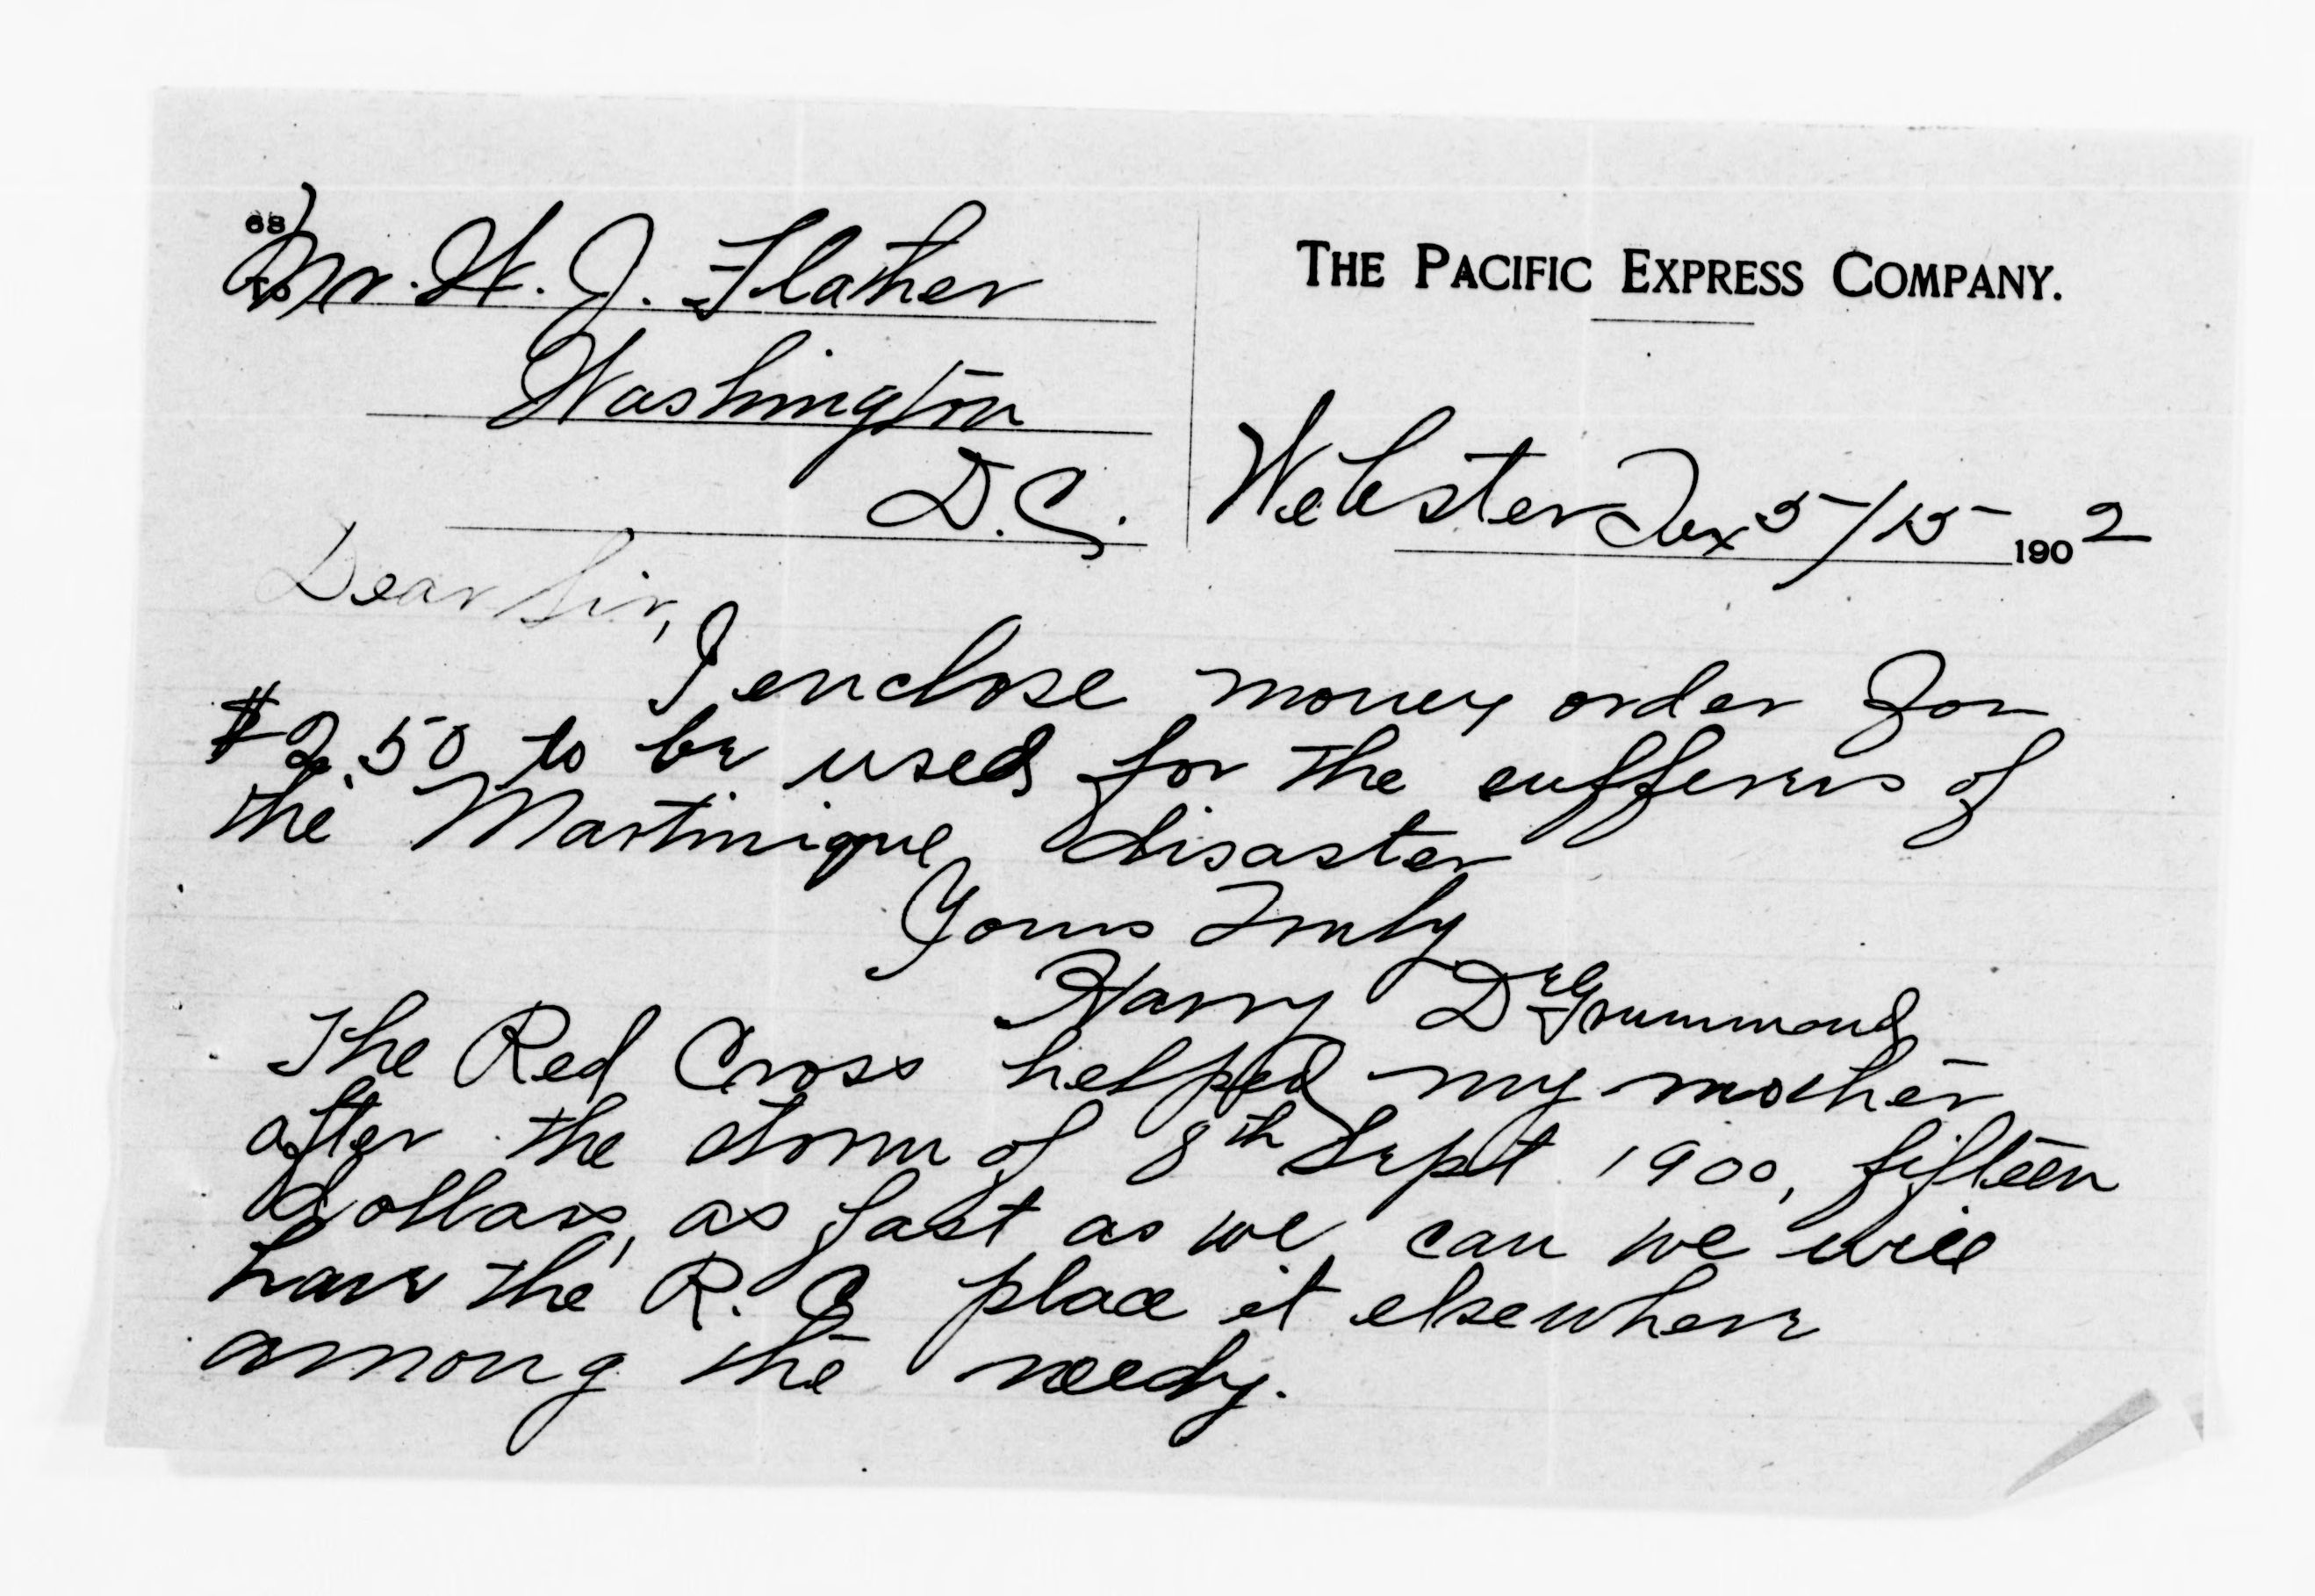 68
Mr. W. J. Flather
Washington
D.C.
THE PACIFIC EXPRESS COMPANY.
Webster Tex 5/15 1902
Dear Sir,
I enclose money order for
$2.50 to be used for the sufferers of
the Martinique disaster
Yours Truly
Harry DeGrummond
The Red Cross helped my mother
after the storm of 8th Sept 1900, fifteen
dollars, as fast as we can we will
have the R. C. place it elsewhere
among the needy.